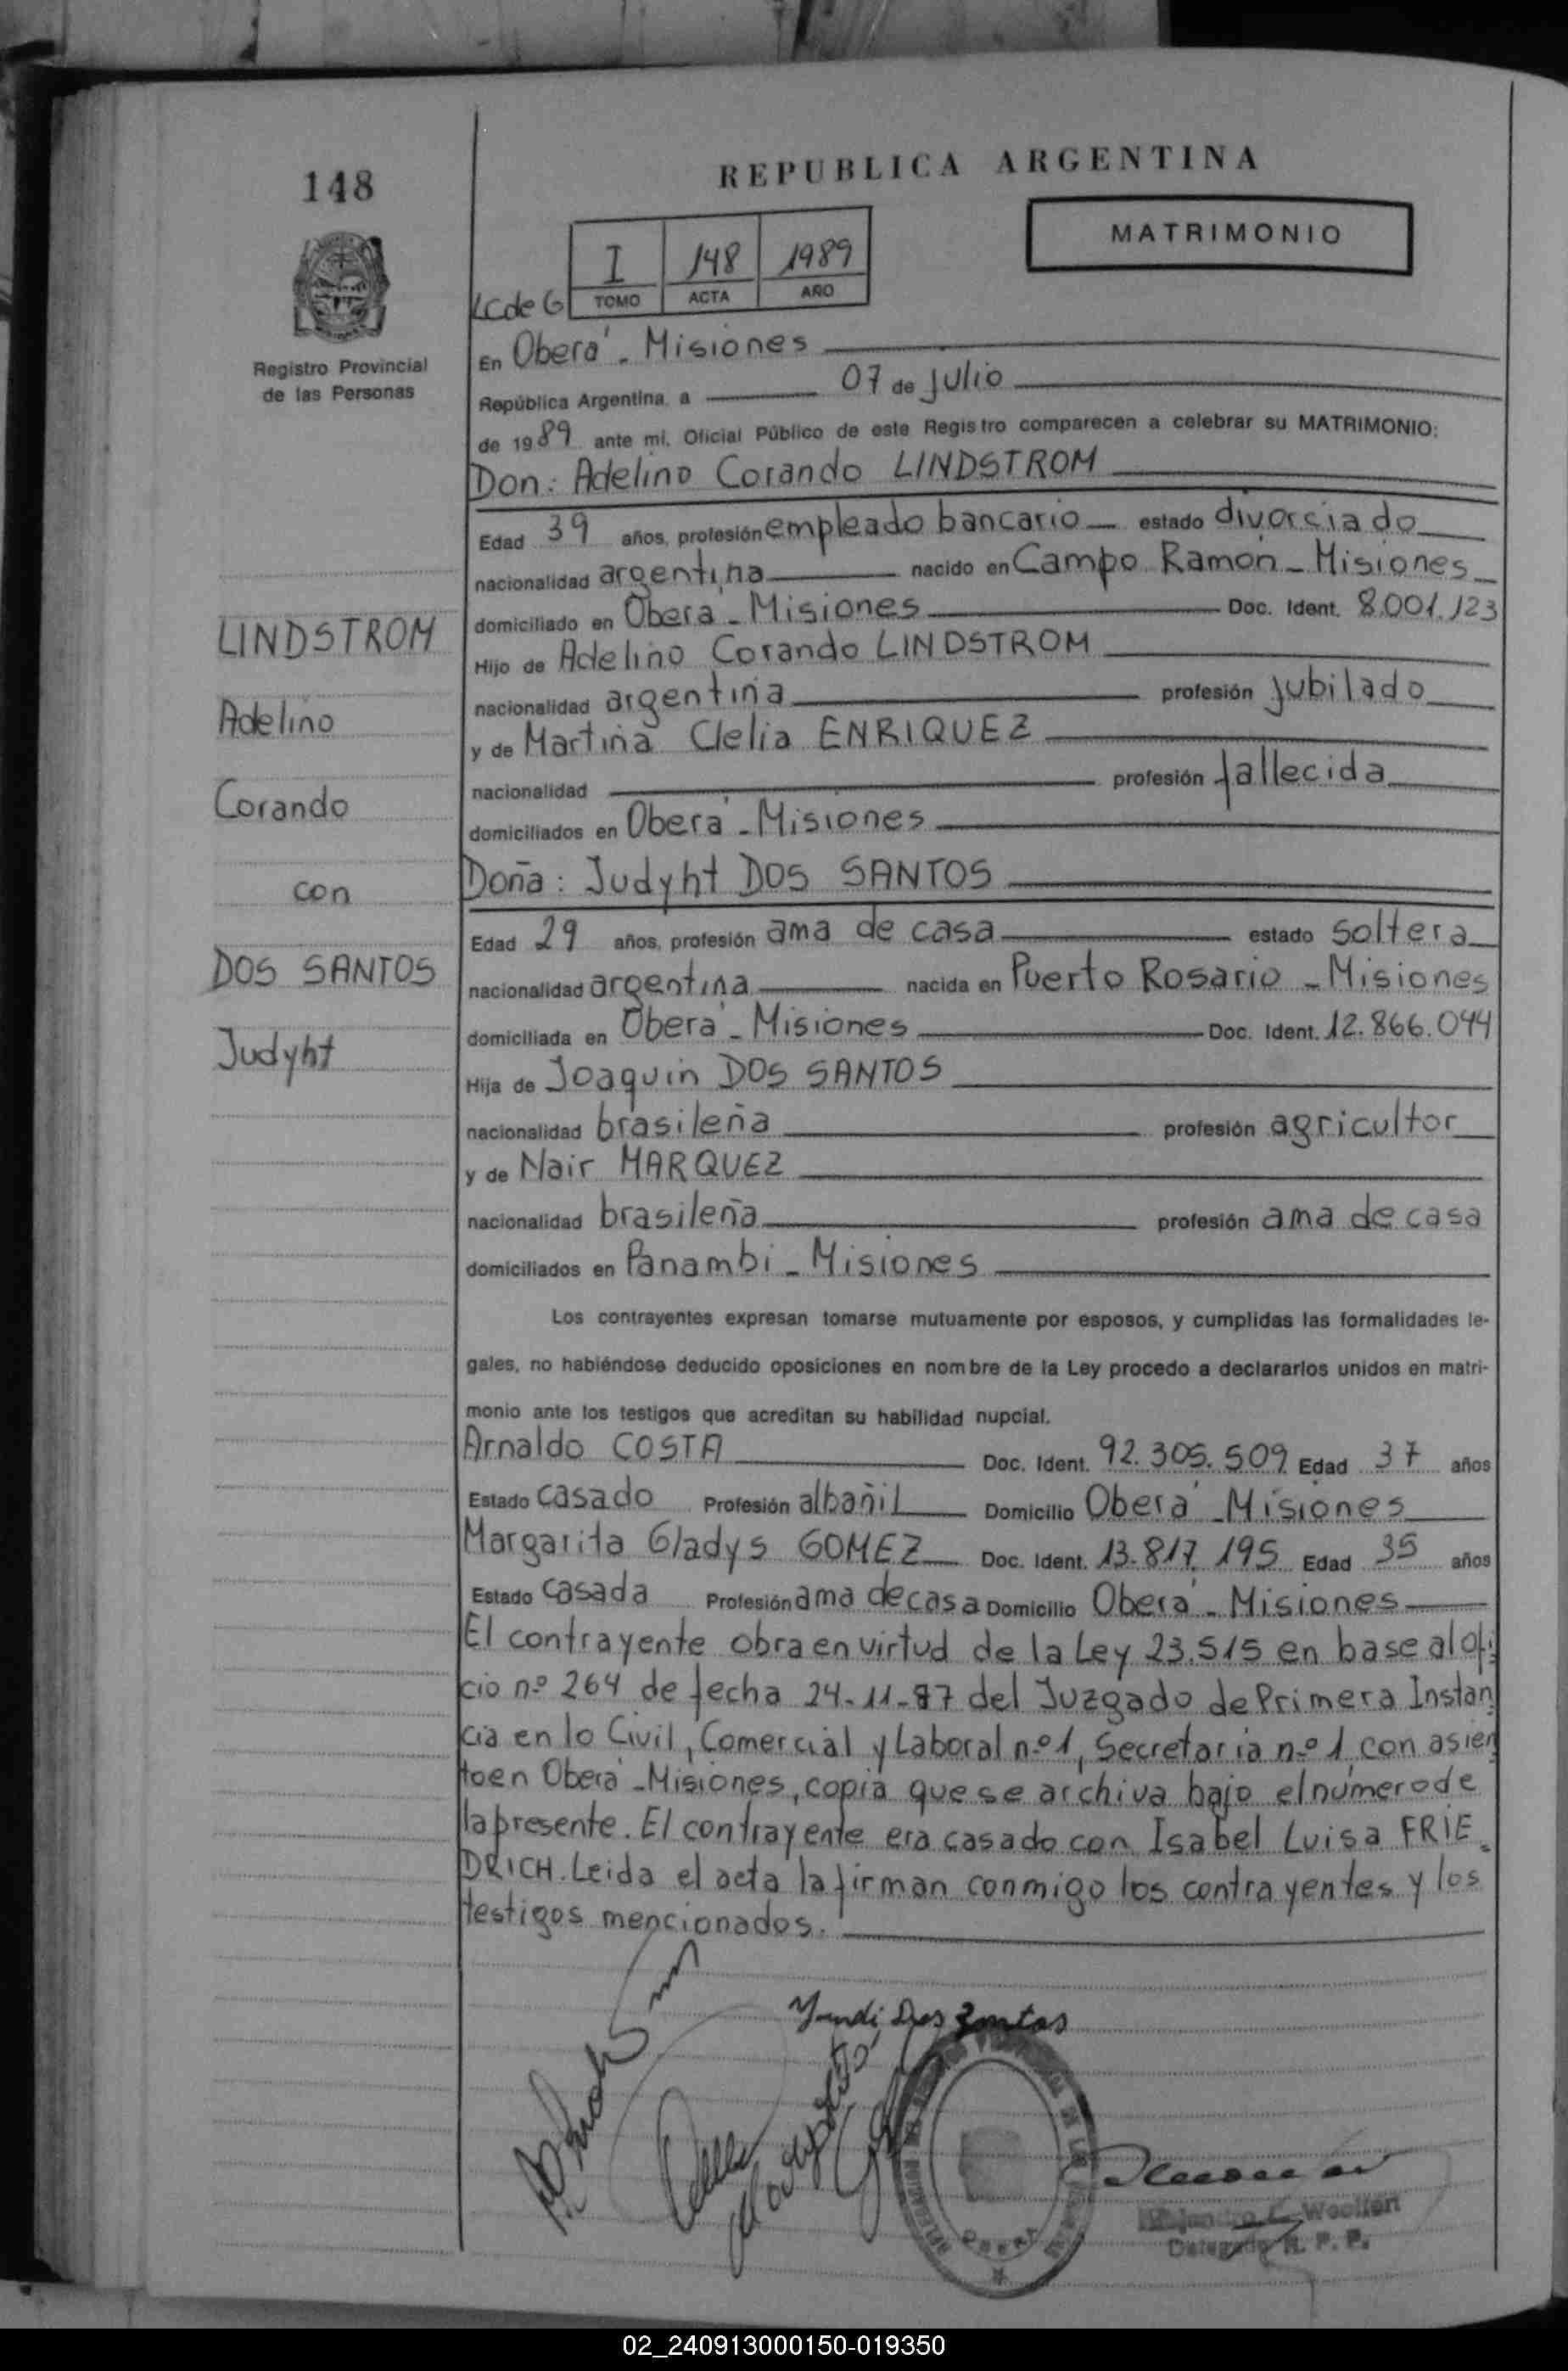 REPUBLICA ARGENTINA
148
MATRIMONIO
I 148 1989
TOMO ACTA AÑO
LC de G
Registro Provincial
de las Personas
En Oberá - Misiones
República Argentina, a 07 de julio
de 1989 ante mi, Oficial Público de este Registro comparecen a celebrar su MATRIMONIO:
Don: Adelino Corando LINDSTROM
Edad 39 años, profesión empleado bancario estado divorciado
nacionalidad argentina nacido en Campo Ramón - Misiones
domiciliado en Oberá - Misiones Doc. Ident. 8.001.123
Hijo de Adelino Corando LINDSTROM
nacionalidad argentina profesión jubilado
y de Martina Clelia ENRIQUEZ
nacionalidad profesión fallecida
domiciliados en Oberá - Misiones
Doña: Judyht DOS SANTOS
Edad 29 años, profesión ama de casa estado soltera
nacionalidad argentina nacida en Puerto Rosario - Misiones
domiciliada en Oberá - Misiones Doc. Ident. 12.866.044
Hija de Joaquin DOS SANTOS
nacionalidad brasileña profesión agricultor
y de Nair MARQUEZ
nacionalidad brasileña profesión ama de casa
domiciliados en Panambi - Misiones
LINDSTROM
Adelino
Corando
con
DOS SANTOS
Judyht
Los contrayentes expresan tomarse mutuamente por esposos, y cumplidas las formalidades le-
gales, no habiéndose deducido oposiciones en nombre de la Ley procedo a declararlos unidos en matri-
monio ante los testigos que acreditan su habilidad nupcial.
Arnaldo COSTA Doc. Ident. 92.305.509 Edad 37 años
Estado casado Profesión albañil Domicilio Oberá - Misiones
Margarita Gladys GOMEZ Doc. Ident. 13.817.195 Edad 35 años
Estado casada Profesión ama de casa Domicilio Oberá - Misiones
El contrayente obra en virtud de la Ley 23.515 en base al ofi
cio nº 264 de fecha 24-11-87 del Juzgado de Primera Instan
cia en lo Civil, Comercial y Laboral nº 1, Secretaria nº 1, con asien
to en Oberá - Misiones, copia que se archiva bajo el número de
la presente. El contrayente era casado con Isabel Luisa FRIE
DRICH. Leida el acta la firman conmigo los contrayentes y los
testigos mencionados.
Dos
Delegado R. P. P.
02_240913000150-019350